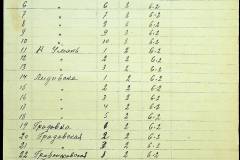 6 " 6 2 6-2
7 " 7 2 6-2
8 " 8 2 6-2
9 " 9 2 6-2
10 " 10 2 6-2
11 Умань 1 2 6-2
12 " 2 2 6-2
13 " 3 2 6-2
14 1 2 6-2
15 " 2 2 6-2
16 " 3 2 6-2
17 " 4 2 6-2
18 " 5 2 6-2
19 Гродовка 2 6-2
20 Гродовская 2 2 6-2
21 " 2 6-2
22 2 6-2